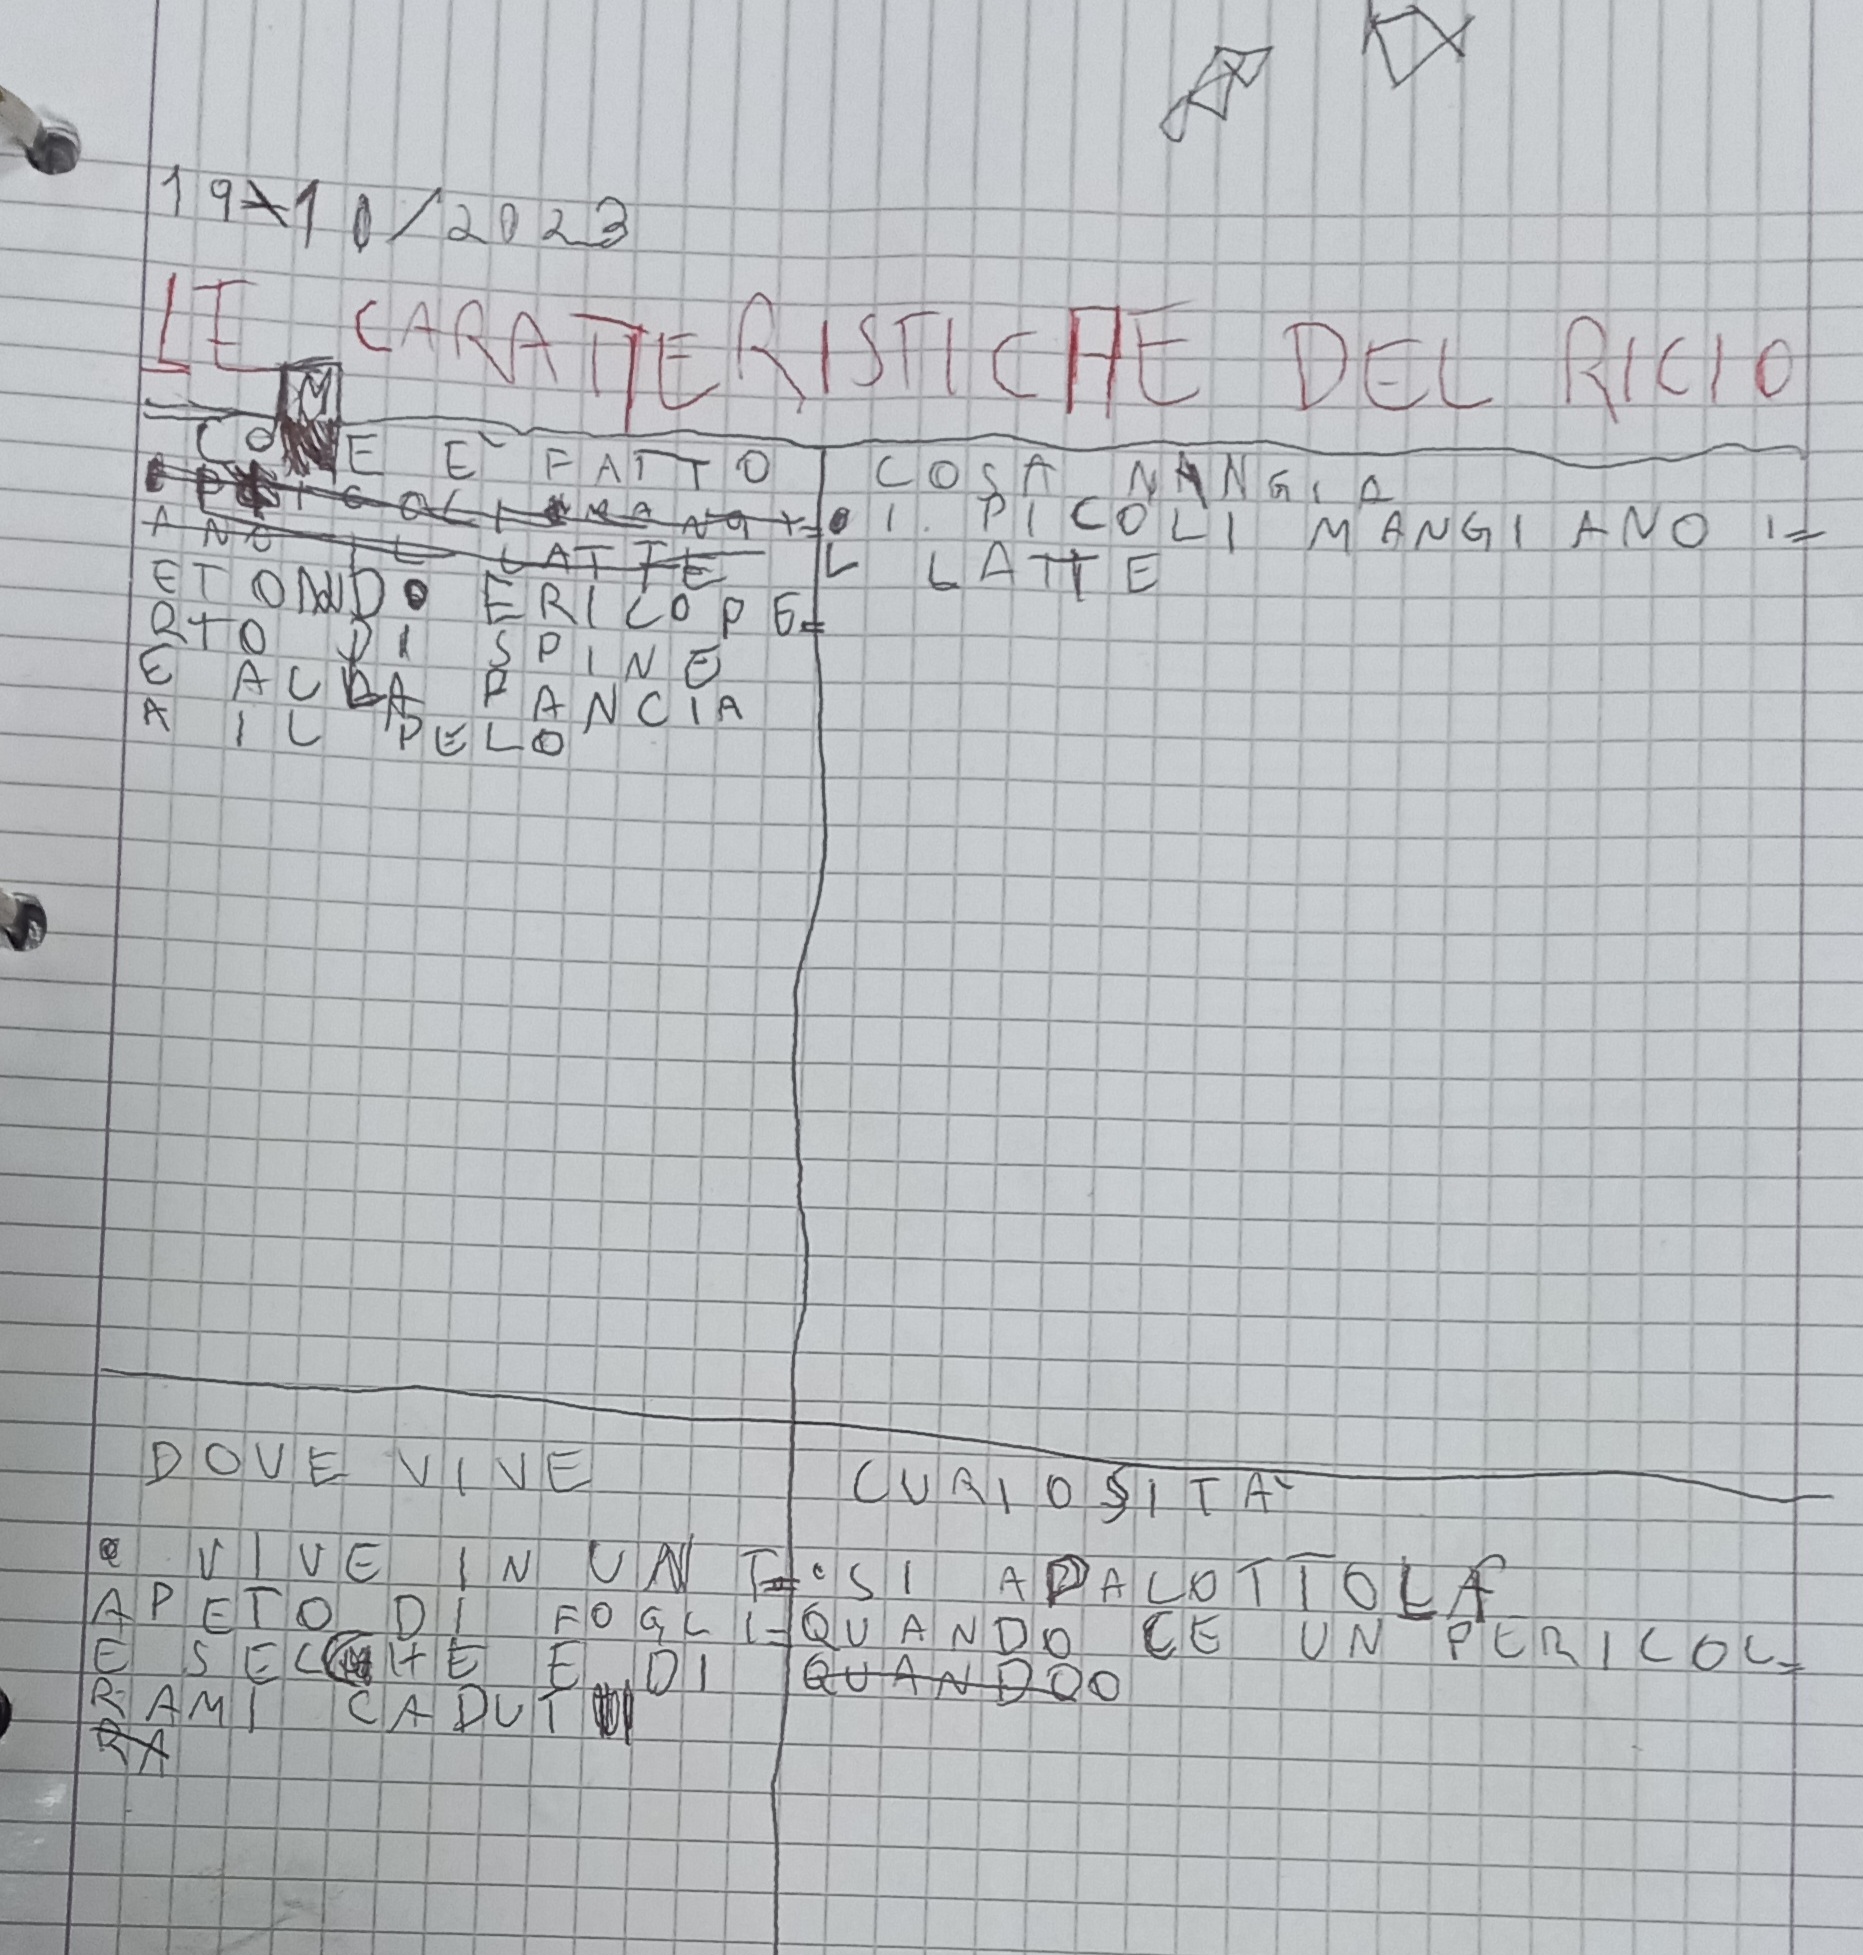 19/10/2023
LE CARATTERISTICHE DEL RICIO
COME E` FATTO
I PICOLI MANGI=
ANO IL LATTE
E TONDO E RICOPE=
RTO DI SPINE
E AL LA PANCIA
A IL PELO
COSA MANGIA
• I PICOLI MANGIANO I=
L LATTE
DOVE VIVE
• VIVE IN UN T=
APETO DI FOGLI=
E SECHE E DI
RAMI CADUTI
RA
CURIOSITA`
• SI APALOTTOLA
QUANDO CE UN PERICOL=
QUANDO O